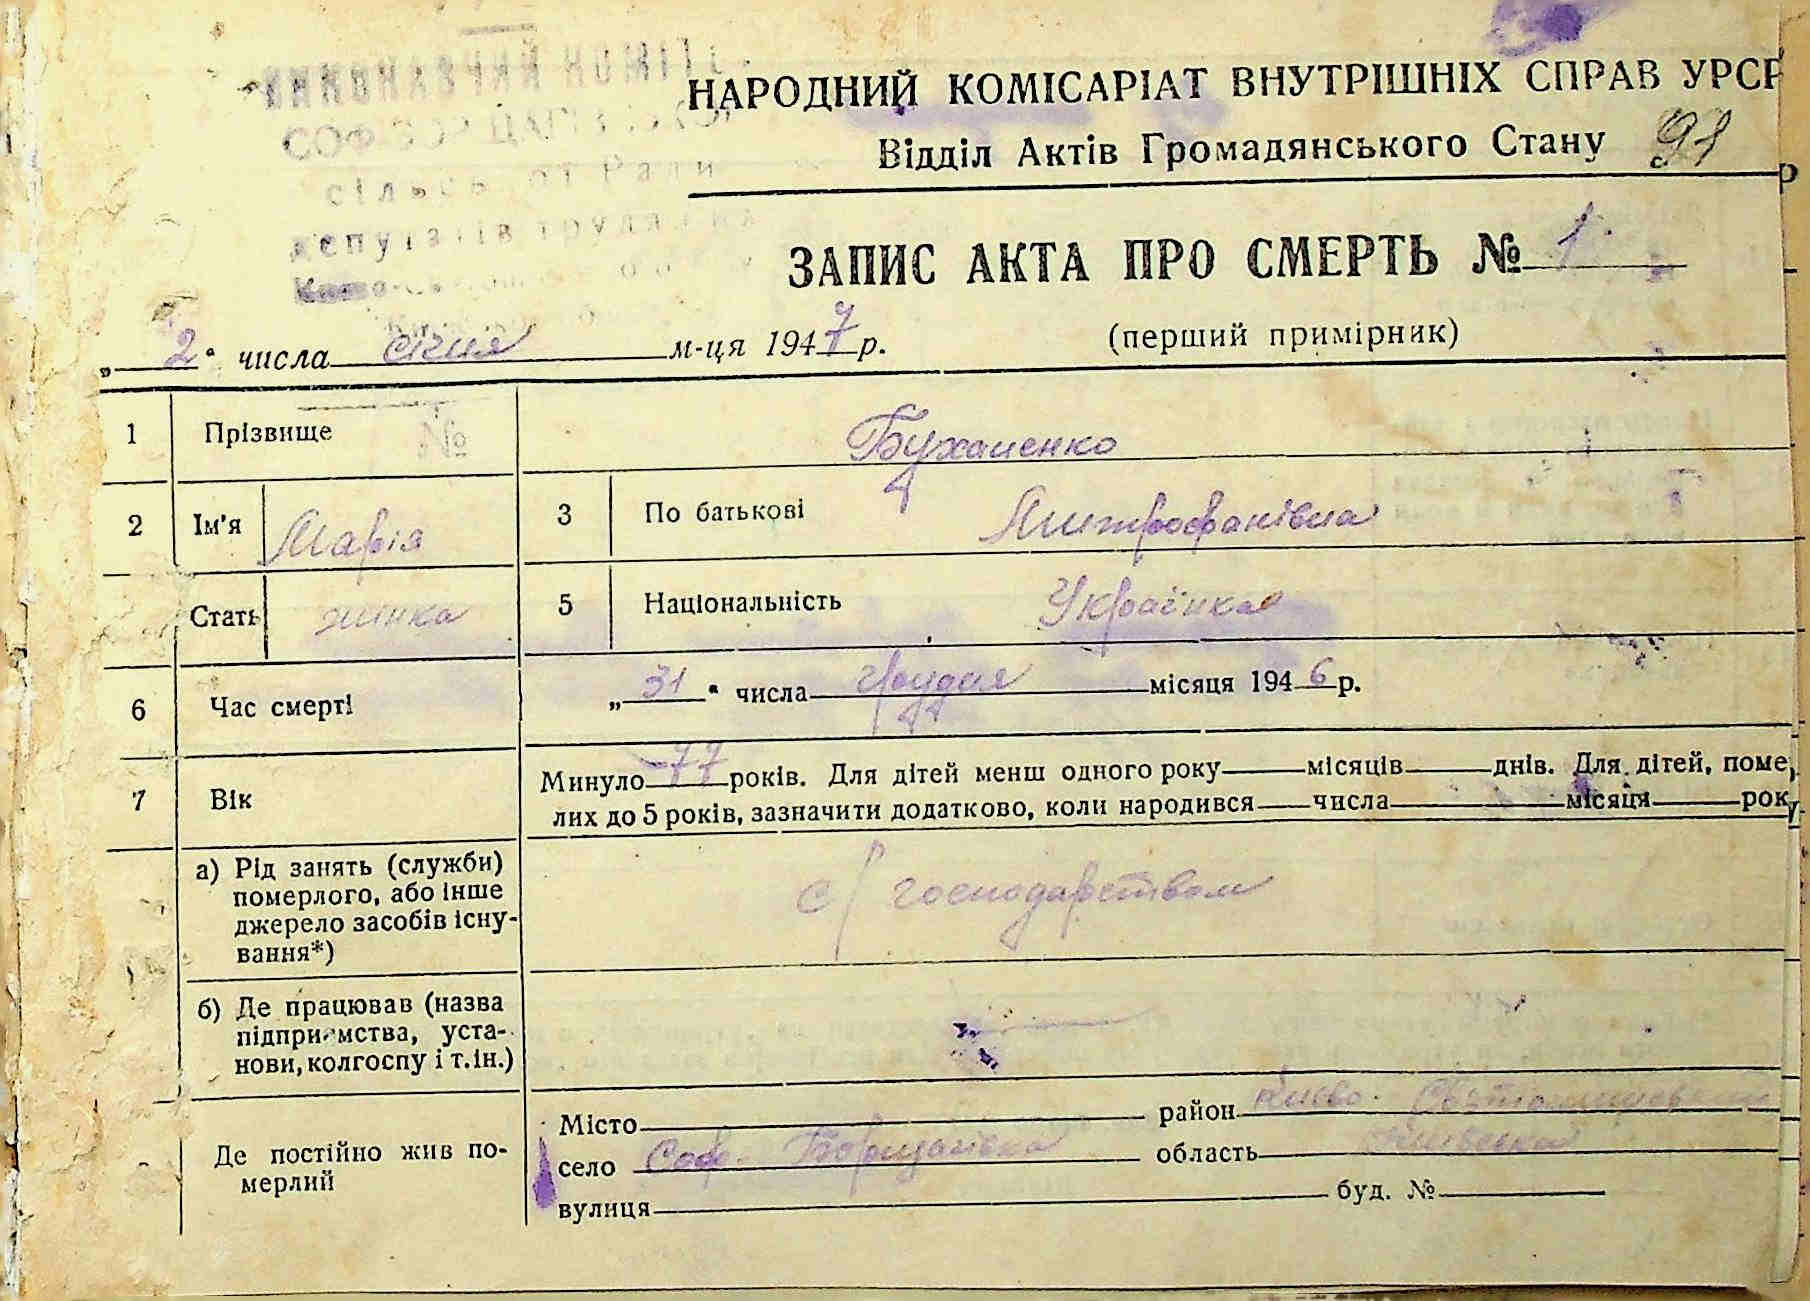 ВИКОНАВЧИЙ КОМІТ
НАРОДНИЙ КОМІСАРІАТ ВНУТРІШНІХ СПРАВ УРСР
Відділ Актів Громадянського Стану
сільс Ради
депутатів трудящих
ЗАПИС АКТА ПРО СМЕРТЬ № 1.
„ 2 “ числа січня м-ця 1947 р. (перший примірник)
1 Прізвище № Бухаленко
2 Ім'я Марія 3 По батькові Митрофанівна
Стать жинка 5 Національність Українка
6 Час смерті „ 31 “ числа грудая місяця 1946 р.
7 Вік Минуло 77 років. Для дітей менш одного року місяців днів. Для дітей, поме
лих до 5 років, зазначити додатково, коли народився числа місяця рок
а) Рід занять (служби) померлого, або інше джерело засобів існування*) с/господарством
б) Де працював (назва підприємства, установи, колгоспу і т.ін.)
Де постійно жив померлий
Місто район Києво-Святошинськ
село Соф-Борщагівка область Київська
вулиця буд. №